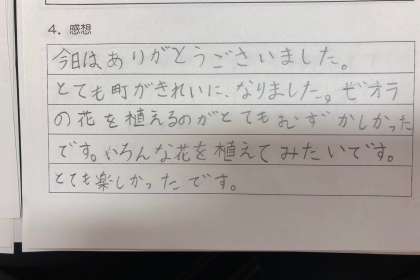 4．感想
今日はありがとうございました。
とても町がきれいに、なりました。ぜオラ
の花を植えるのがとてもむずかしかった
です。いろんな花を植えてみたいです。
とても楽しかったです。